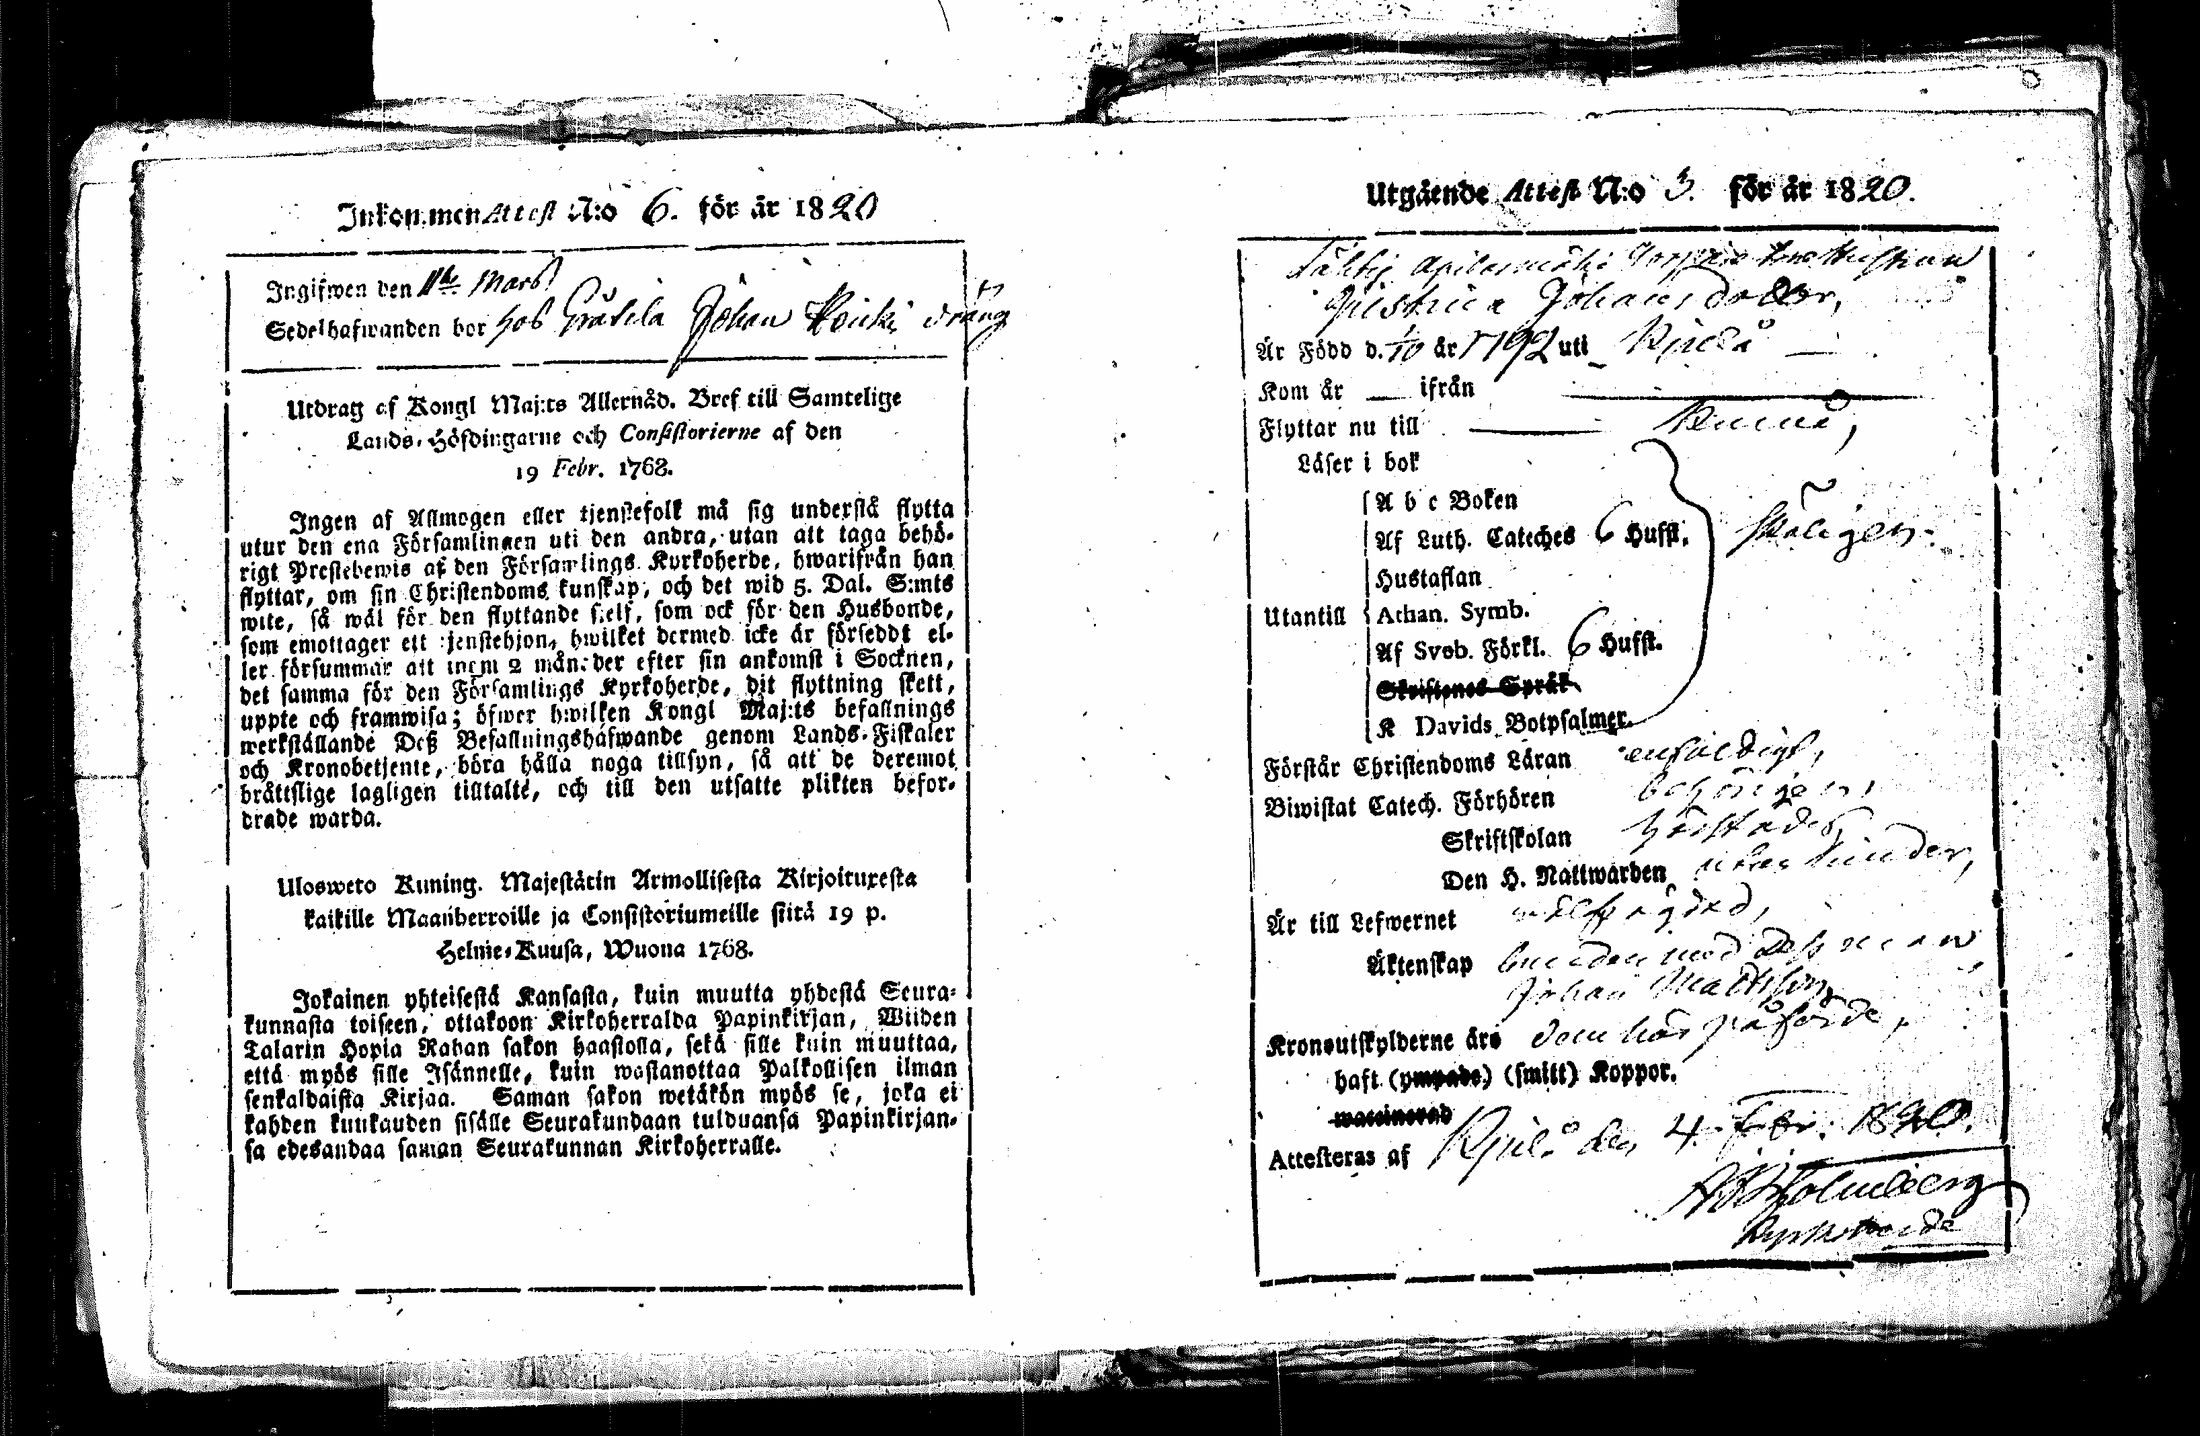 Inkommen Attest N:o 6. för år 1820
Ingifwen den 11te Mars
Sedelhafwanden bor hos Gråtila Johan Heicki dräng
Utdrag af Kongl Maj:ts Allernåd. Bref till Samtelige
Lands-Höfdingarne och Consistorierne af den
19 Febr. 1768.
Ingen af Allmogen eller tjenstefolk må sig understå flytta
utur den ena Församlingen uti den andra, utan att taga behö-
rigt Prestebewis af den Församlings Kyrkoherde, hwarifrån han
flyttar, om sin Christendoms kunskap, och det wid 5. Dal. S:mts
wite, så wäl för den flyttande sjelf, som ock för den Husbonde,
som emottager ett tjenstehjon, hwilket dermed icke är försedt el-
ler försummar att inom 2 månader efter sin ankomst i Socknen,
det samma för den Församlings Kyrkoherde, dit flyttning skett,
uppte och framwisa; öfwer hwilken Kongl Maj:ts befallnings
werkställande Deß Befallningshafwande genom Lands-Fiskaler
och Kronobetjente, böra hålla noga tillsyn, så att de deremot
bråttslige lagligen tilltalte, och till den utsatte plikten befor-
drade warda.
Ulosweto Kuning. Majestätin Armollisesta Kirjoituxesta
kaikille Maanherroille ja Consistoriumeille siitä 19 p.
Helmi-Kuusa, Wuona 1768.
Jokainen yhteisestä Kansasta, kuin muutta yhdestä Seura-
kunnasta toiseen, ottakoon Kirkoherralda Papinkirjan, Wiiden
Talarin Hopia Rahan sakon haastolla, sekä sille kuin muuttaa,
että myös sille Isännelle, kuin wastanottaa Palkollisen ilman
senkaldaista Kirjaa. Saman sakon wetäkön myös se, joka ei
kahden kuukauden sisälle Seurakundaan tulduansa Papinkirjan-
sa edesandaa saman Seurakunnan Kirkoherralle.
Utgående Attest N:o 3. för år 1820.
Johansdotter,
Är Född d. 1/10 år 1792 uti Kjulå
Kom år — ifrån
Flyttar nu till Kumå,
Läser i bok
A b c Boken
Af Luth. Cateches 6 Hufst. skäligen.
Hustaflan
Utantill Athan. Symb.
Af Sveb. Förkl. 6 Hufst.
Skriftenes Språk
K Davids Botpsalmer.
Förstår Christendoms Läran enfaldigt,
Biwistat Catech. Förhören behörigen,
Skriftskolan
Den H. Nattwarden utan hinder,
Är till Lefwernet välfrägdad,
Äktenskap bunden med dess man
Johan Mattsson,
Kronoutskylderne äro dem här påförde,
haft (ympade) (smitt) Koppor.
waccinerad
Attesteras af Kjulo den 4. Febr. 1820.
Holmberg
Kyrkoherde